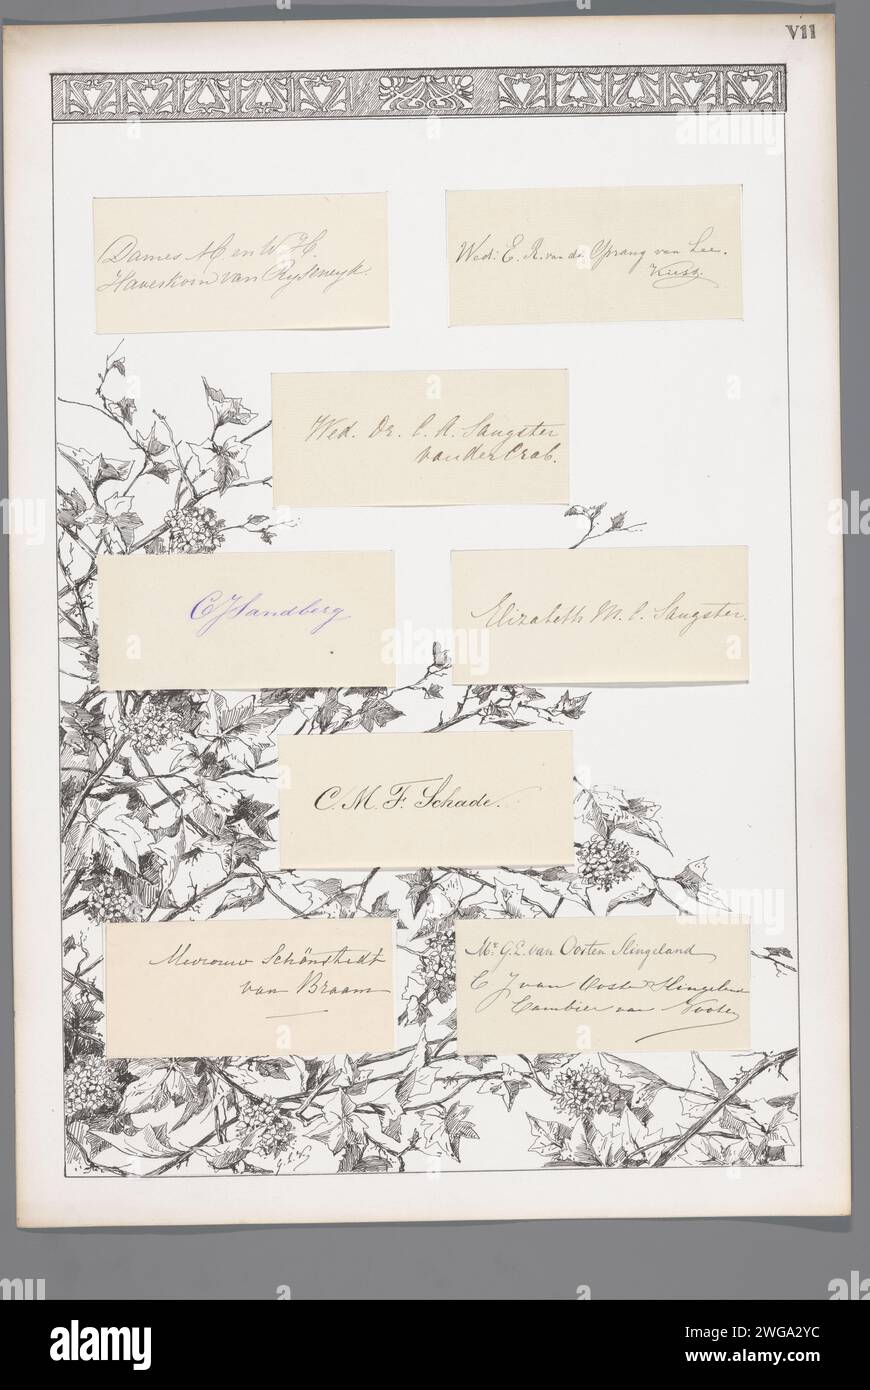 VII
Dames M. C. en W. H.
Haverkorn van Rijsewijk.
Wed: E. R. van der Sprang van Lee.
Wed. Dr. C. A. Sangster
van der Crab.
C J Sandberg
Elizabeth M. C. Sangster.
C. M. F. Schade.
Mevrouw Schönstedt
van Braam
Mr. G. L. van Oosten Slingeland
C J van Oosten Slingeland
Cambier van Nooten
alamy
Image ID: 2WGA2YC
www.alamy.com